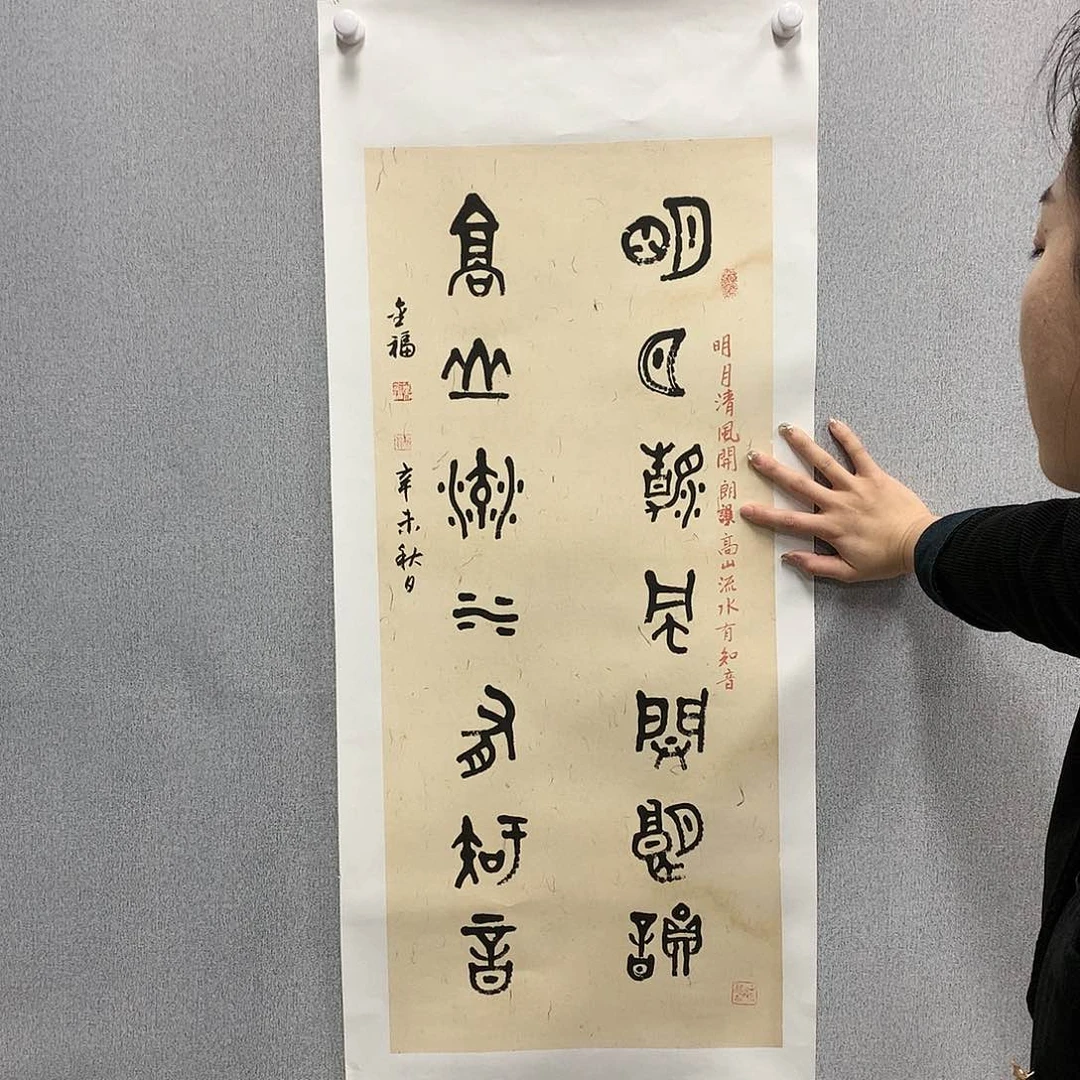 明月清風開朗高山流水有知音
明月開朗
高山流水有知音
金福
辛未秋日